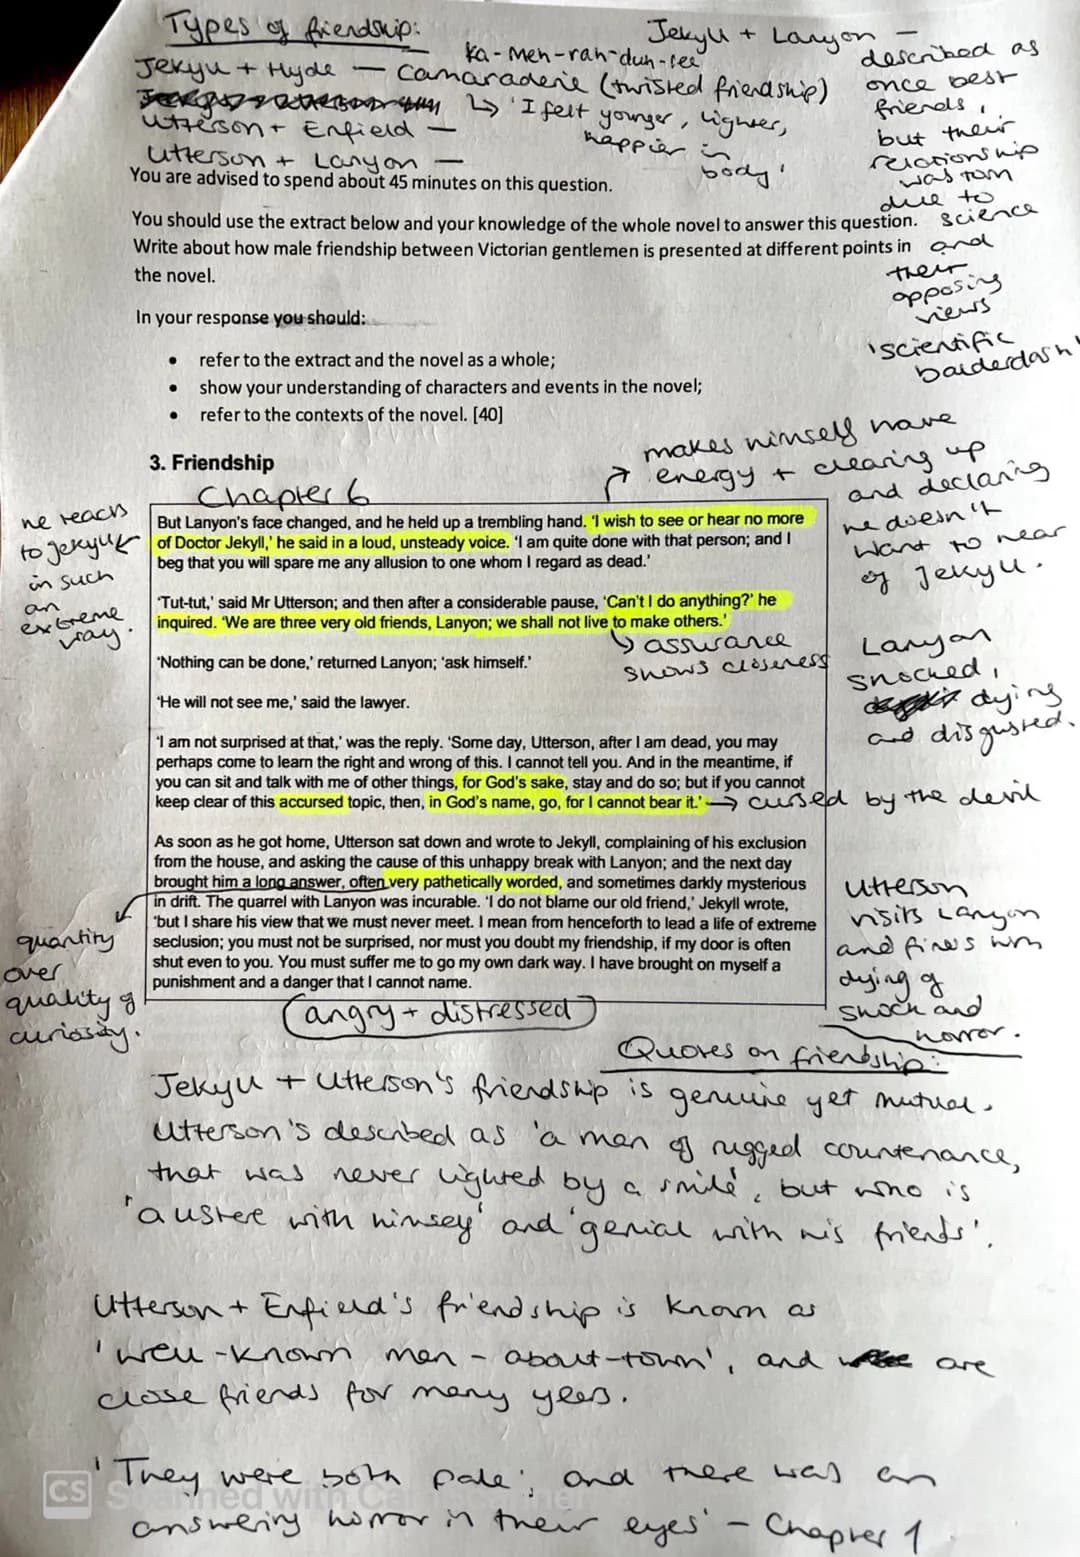 Types of friendship:
Jekyll + Hyde — camaraderie (twisted friendship)
ka-men-rah-duh-ree
↳ 'I felt younger, lighter,
happier in
body'
Utterson + Enfield —
Utterson + Lanyon —
Jekyll + Lanyon —
described as
once best
friends,
but their
relationship
was torn
due to
science
and
their
opposing
views
'scientific
balderdash'
You are advised to spend about 45 minutes on this question.
You should use the extract below and your knowledge of the whole novel to answer this question.
Write about how male friendship between Victorian gentlemen is presented at different points in
the novel.
In your response you should:
• refer to the extract and the novel as a whole;
• show your understanding of characters and events in the novel;
• refer to the contexts of the novel. [40]
3. Friendship
Chapter 6
makes himself have
energy + clearing up
and declaring
he doesn't
want to hear
of Jekyll.
he reacts
to Jekyll
in such
an
extreme
way.
But Lanyon's face changed, and he held up a trembling hand. 'I wish to see or hear no more
of Doctor Jekyll,' he said in a loud, unsteady voice. 'I am quite done with that person; and I
beg that you will spare me any allusion to one whom I regard as dead.'
'Tut-tut,' said Mr Utterson; and then after a considerable pause, 'Can't I do anything?' he
inquired. 'We are three very old friends, Lanyon; we shall not live to make others.'
↳ assurance
shows closeness
'Nothing can be done,' returned Lanyon; 'ask himself.'
'He will not see me,' said the lawyer.
Lanyon
shocked,
dying
and disgusted.
'I am not surprised at that,' was the reply. 'Some day, Utterson, after I am dead, you may
perhaps come to learn the right and wrong of this. I cannot tell you. And in the meantime, if
you can sit and talk with me of other things, for God's sake, stay and do so; but if you cannot
keep clear of this accursed topic, then, in God's name, go, for I cannot bear it.'
→ cursed by the devil
As soon as he got home, Utterson sat down and wrote to Jekyll, complaining of his exclusion
from the house, and asking the cause of this unhappy break with Lanyon; and the next day
brought him a long answer, often very pathetically worded, and sometimes darkly mysterious
in drift. The quarrel with Lanyon was incurable. 'I do not blame our old friend,' Jekyll wrote,
'but I share his view that we must never meet. I mean from henceforth to lead a life of extreme
seclusion; you must not be surprised, nor must you doubt my friendship, if my door is often
shut even to you. You must suffer me to go my own dark way. I have brought on myself a
punishment and a danger that I cannot name.
quantity
over
quality of
curiosity.
Utterson
visits Lanyon
and finds him
dying of
shock and
horror.
angry + distressed
Quotes on friendship:
Jekyll + Utterson's friendship is genuine yet mutual.
Utterson's described as 'a man of rugged countenance,
that was never lighted by a smile', but who is
'austere with himself' and 'genial with his friends'.
Utterson + Enfield's friendship is known as
'well-known men-about-town', and are
close friends for many years.
'They were both pale; and there was an
answering horror in their eyes' – Chapter 1
CS Scanned with CamScanner